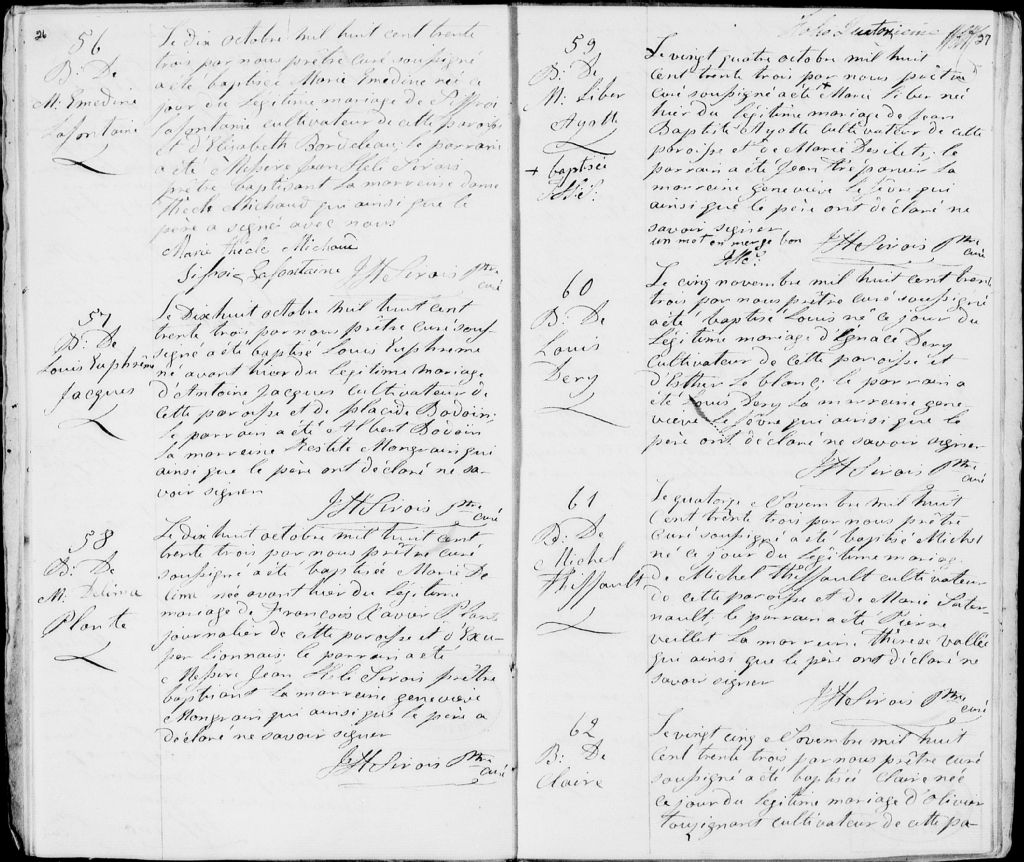 26
56
B: De
M: Emedine
Lafontaine
Le dix octobre mil huit cent trente
trois par nous prêtre curé soussigné
a été baptisée Marie Emedine née ce
jour du légitime mariage de
Lafontaine cultivateur de cette paroisse
et d'Elisabeth Bordeleau; le parrain
a été Messire Jean H. Sirois
prêtre baptisant la marraine dame
Thècle Michaud qui ainsi que le
père a signé avec nous
Marie Thècle Michaud
Lafontaine JHSirois Ptre
curé
57
B: De
Louis Euphrème
Jacques
Le Dixhuit octobre mil huit cent
trente trois par nous prêtre curé sous-
signé a été baptisé Louis Euphrême
né avant hier du légitime mariage
d'Antoine Jacques cultivateur de
cette paroisse et de placide Bodoin;
le parrain a été Albert Bodoin
la marreine Restite Mongrain qui
ainsi que le père ont déclaré ne sa-
voir signer
JHSirois Ptre
curé
58
B: De
M: Delima
Plante
Le dixhuit octobre mil huit cent
trente trois par nous prêtre curé
soussigné a été baptisée Marie De
lima née avant hier du légitime
mariage de François Xavier Plante
journalier de cette paroisse et d'Exu-
per Lionnais; le parrain a été
Messire Jean Sirois prêtre
baptisant la marreine genevieve
Mongrain qui ainsi que le père a
déclaré ne savoir signer
JHSirois Ptre
curé
27
59
B: De
M: Liber
Ayotte
+ baptisée
Le vingt quatre octobre mil huit
cent trente trois par nous prêtre
curé soussigné a été + Marie Liber née
hier du légitime mariage de Jean
Baptiste Ayotte cultivateur de cette
paroisse et de Marie Desilets; le
parrain a été Jean Trépanier la
marreine genevieve Lefèvre qui
ainsi que le père ont déclaré ne
savoir signer
un mot en marge bon JHSirois Ptre
curé
60
B: De
Louis
Dery
Le cinq novembre mil huit cent trente
trois par nous prêtre curé soussigné
a été baptisé Louis né ce jour du
légitime mariage d'Ignace Dery
cultivateur de cette paroisse et
d'Esther Leblanc; le parrain a
été Louis Dery la marreine gene
vieve Lefèvre qui ainsi que le
père ont déclaré ne savoir signer
JHSirois Ptre
curé
61
B: De
Michel
Thiffault
Le quatorze Novembre mil huit
cent trente trois par nous prêtre
curé soussigné a été baptisé Michel
né ce jour du légitime mariage
de Michel Thiffault cultivateur
de cette paroisse et de Marie
le parrain a été Pierre
veillet la marreine Thérèse vallée
qui ainsi que le père ont déclaré ne
savoir signer
JHSirois Ptre
curé
62
B: De
Claire
Le vingt cinq Novembre mil huit
cent trente trois par nous prêtre curé
soussigné a été baptisée Claire née
ce jour du légitime mariage d'Olivier
Tousignant cultivateur de cette pa-